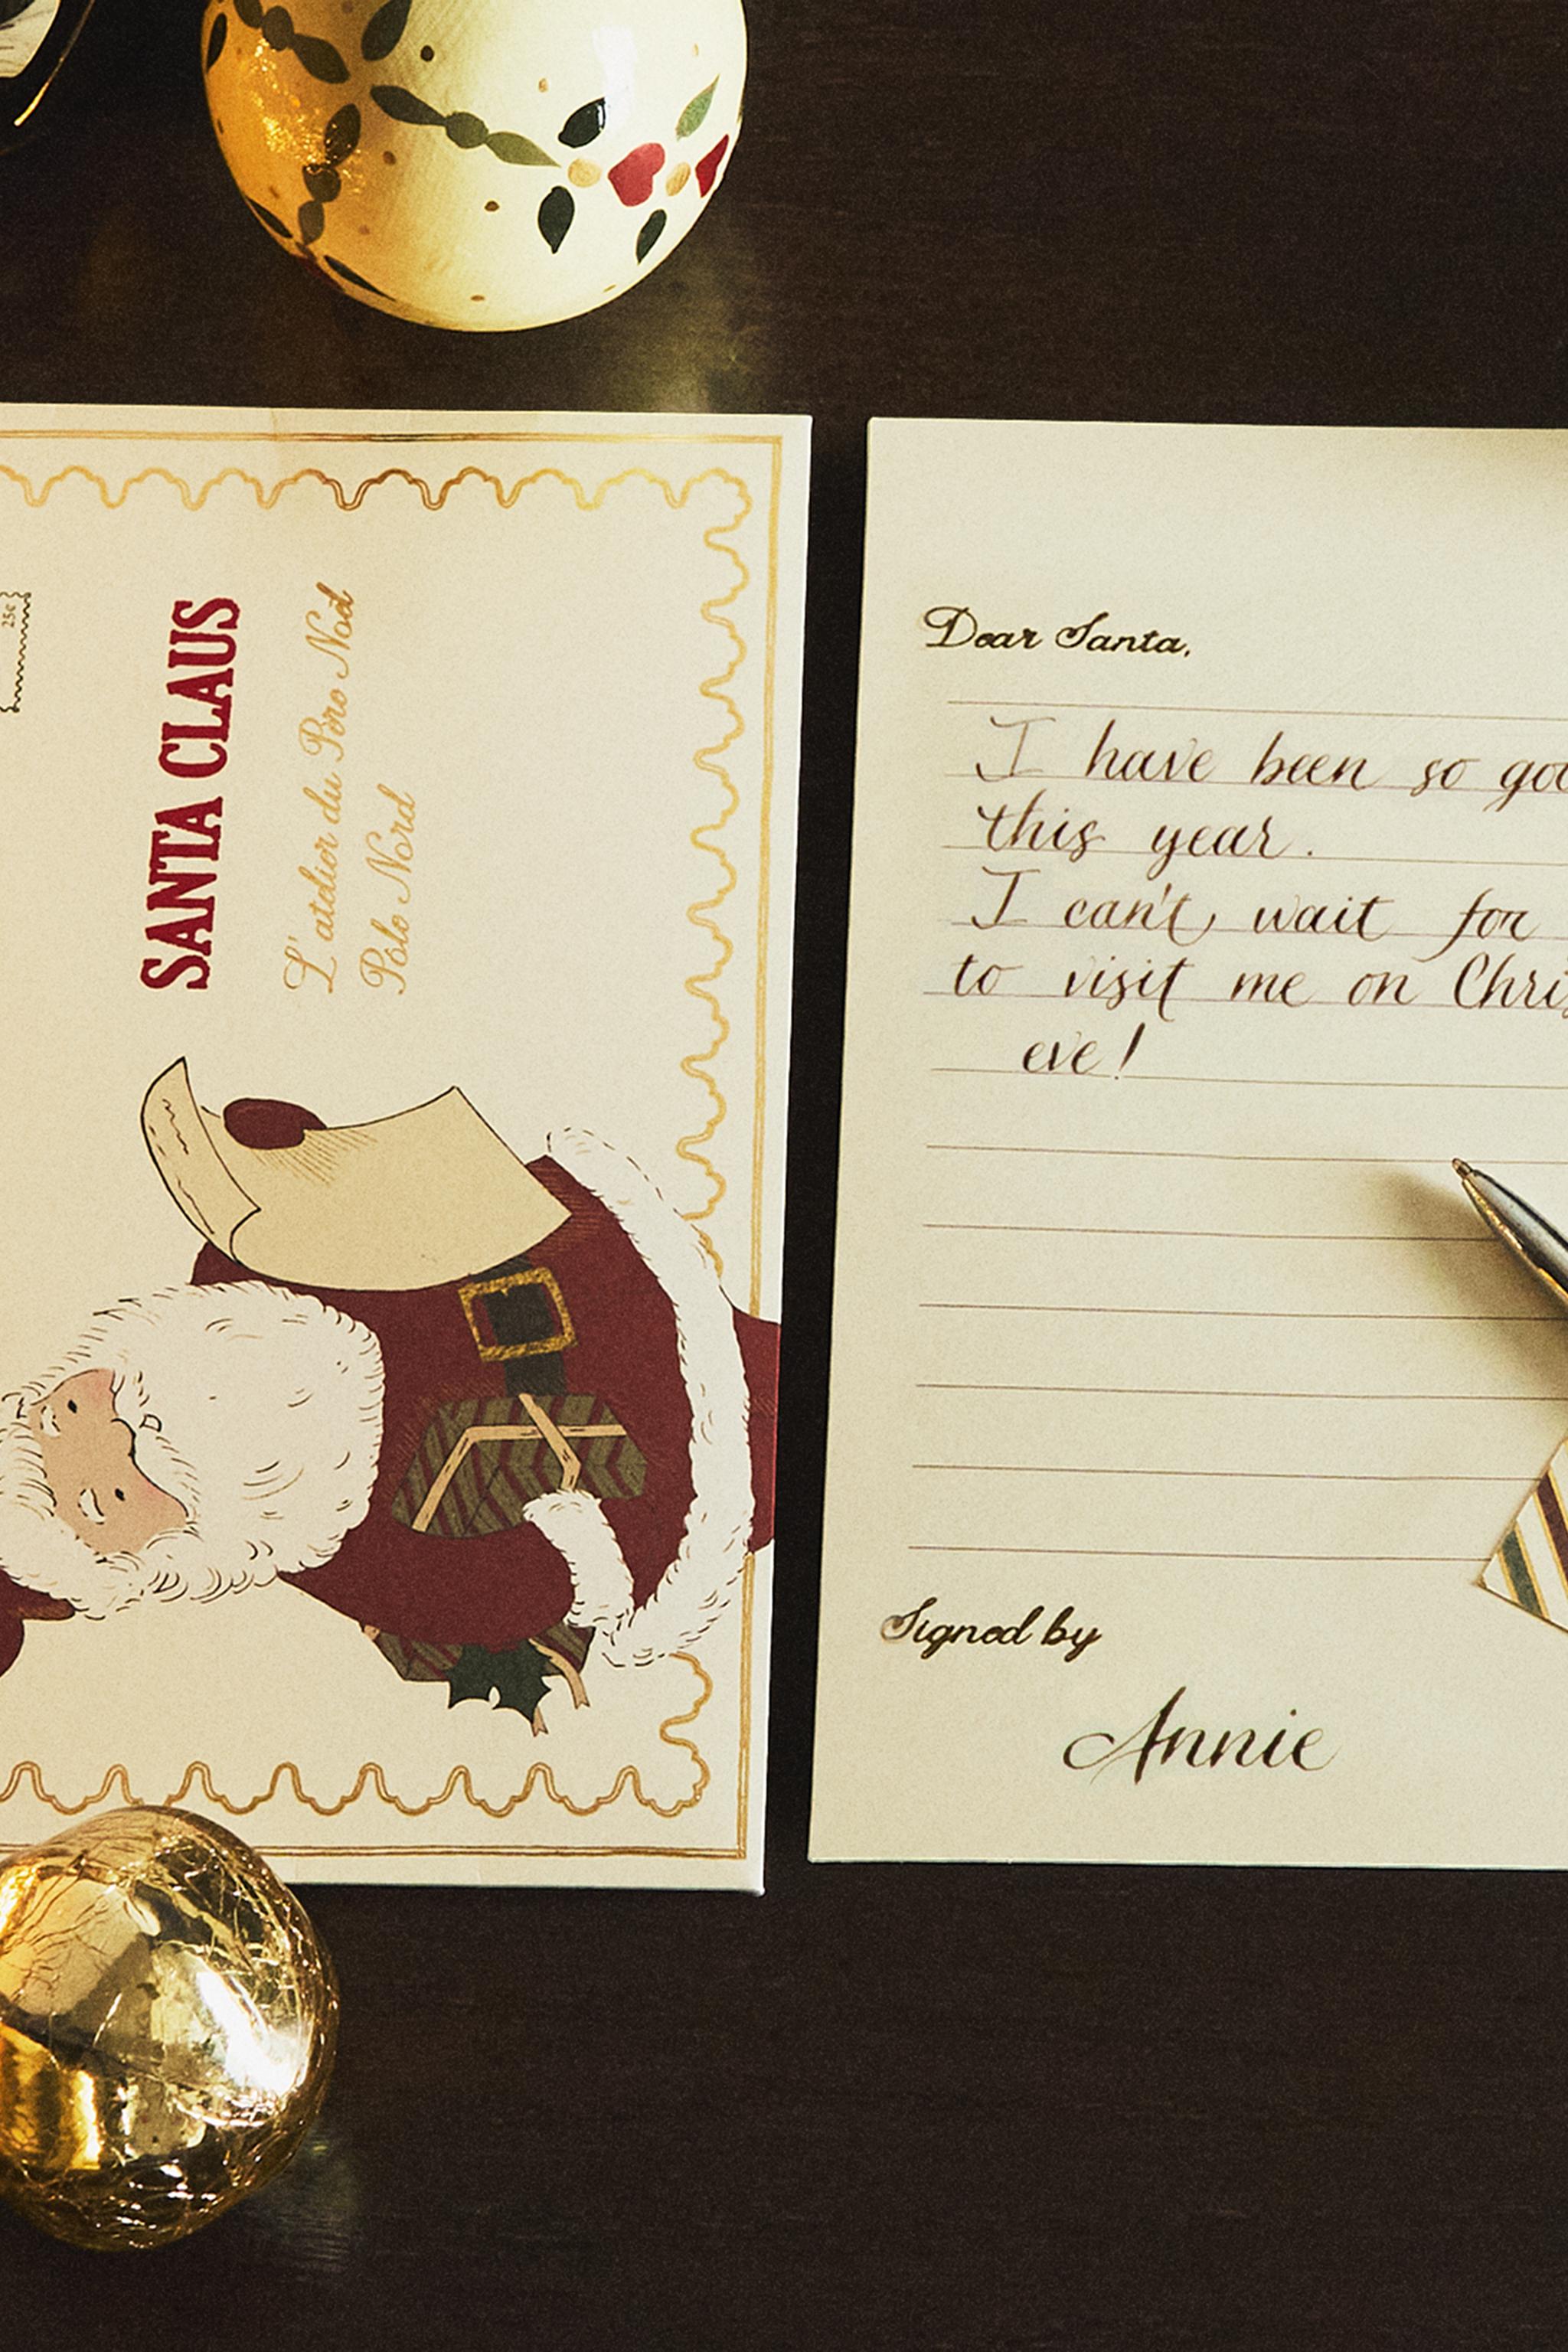 25c
SANTA CLAUS
L'atelier du Père Noël
Pôle Nord
Dear Santa,
I have been so
this year.
I can't wait for
to visit me on
eve!
Signed by
Annie